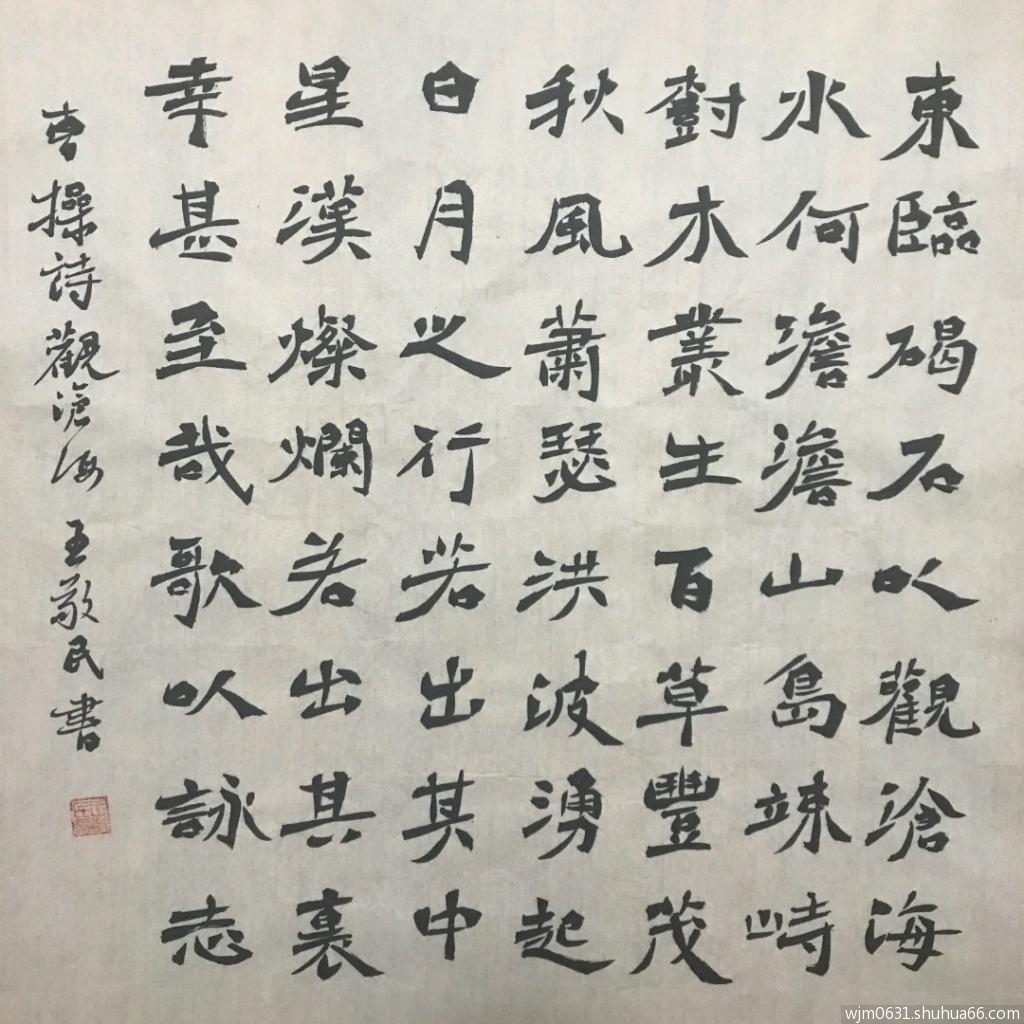 東臨碣石以觀滄海
水何澹澹山島竦峙
對木叢生百草豐茂
秋風蕭瑟洪波湧起
日月之行若出其中
星漢燦爛若出其裏
幸甚至哉歌以詠志
曹操詩觀滄海 王敬民書
wjm0631.shuhua66.com